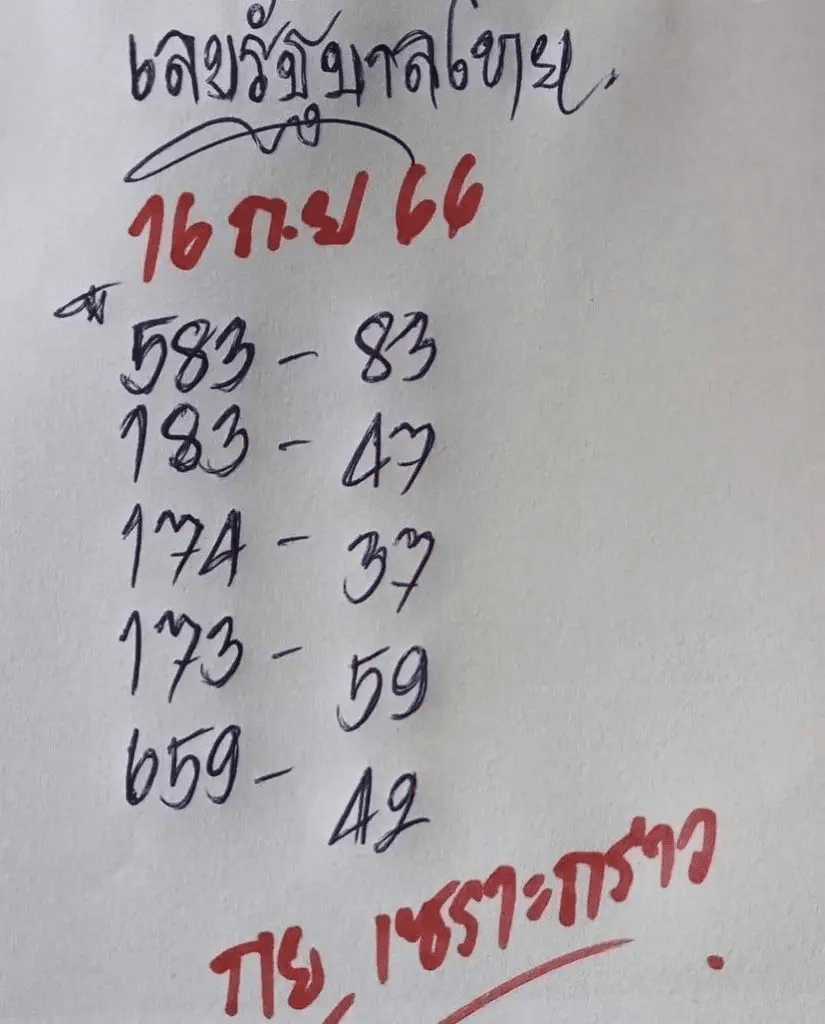 เลขรัฐบาลไทย
16 ก.ย 66
583 - 83
183 - 47
174 - 37
173 - 59
659 - 42
กย